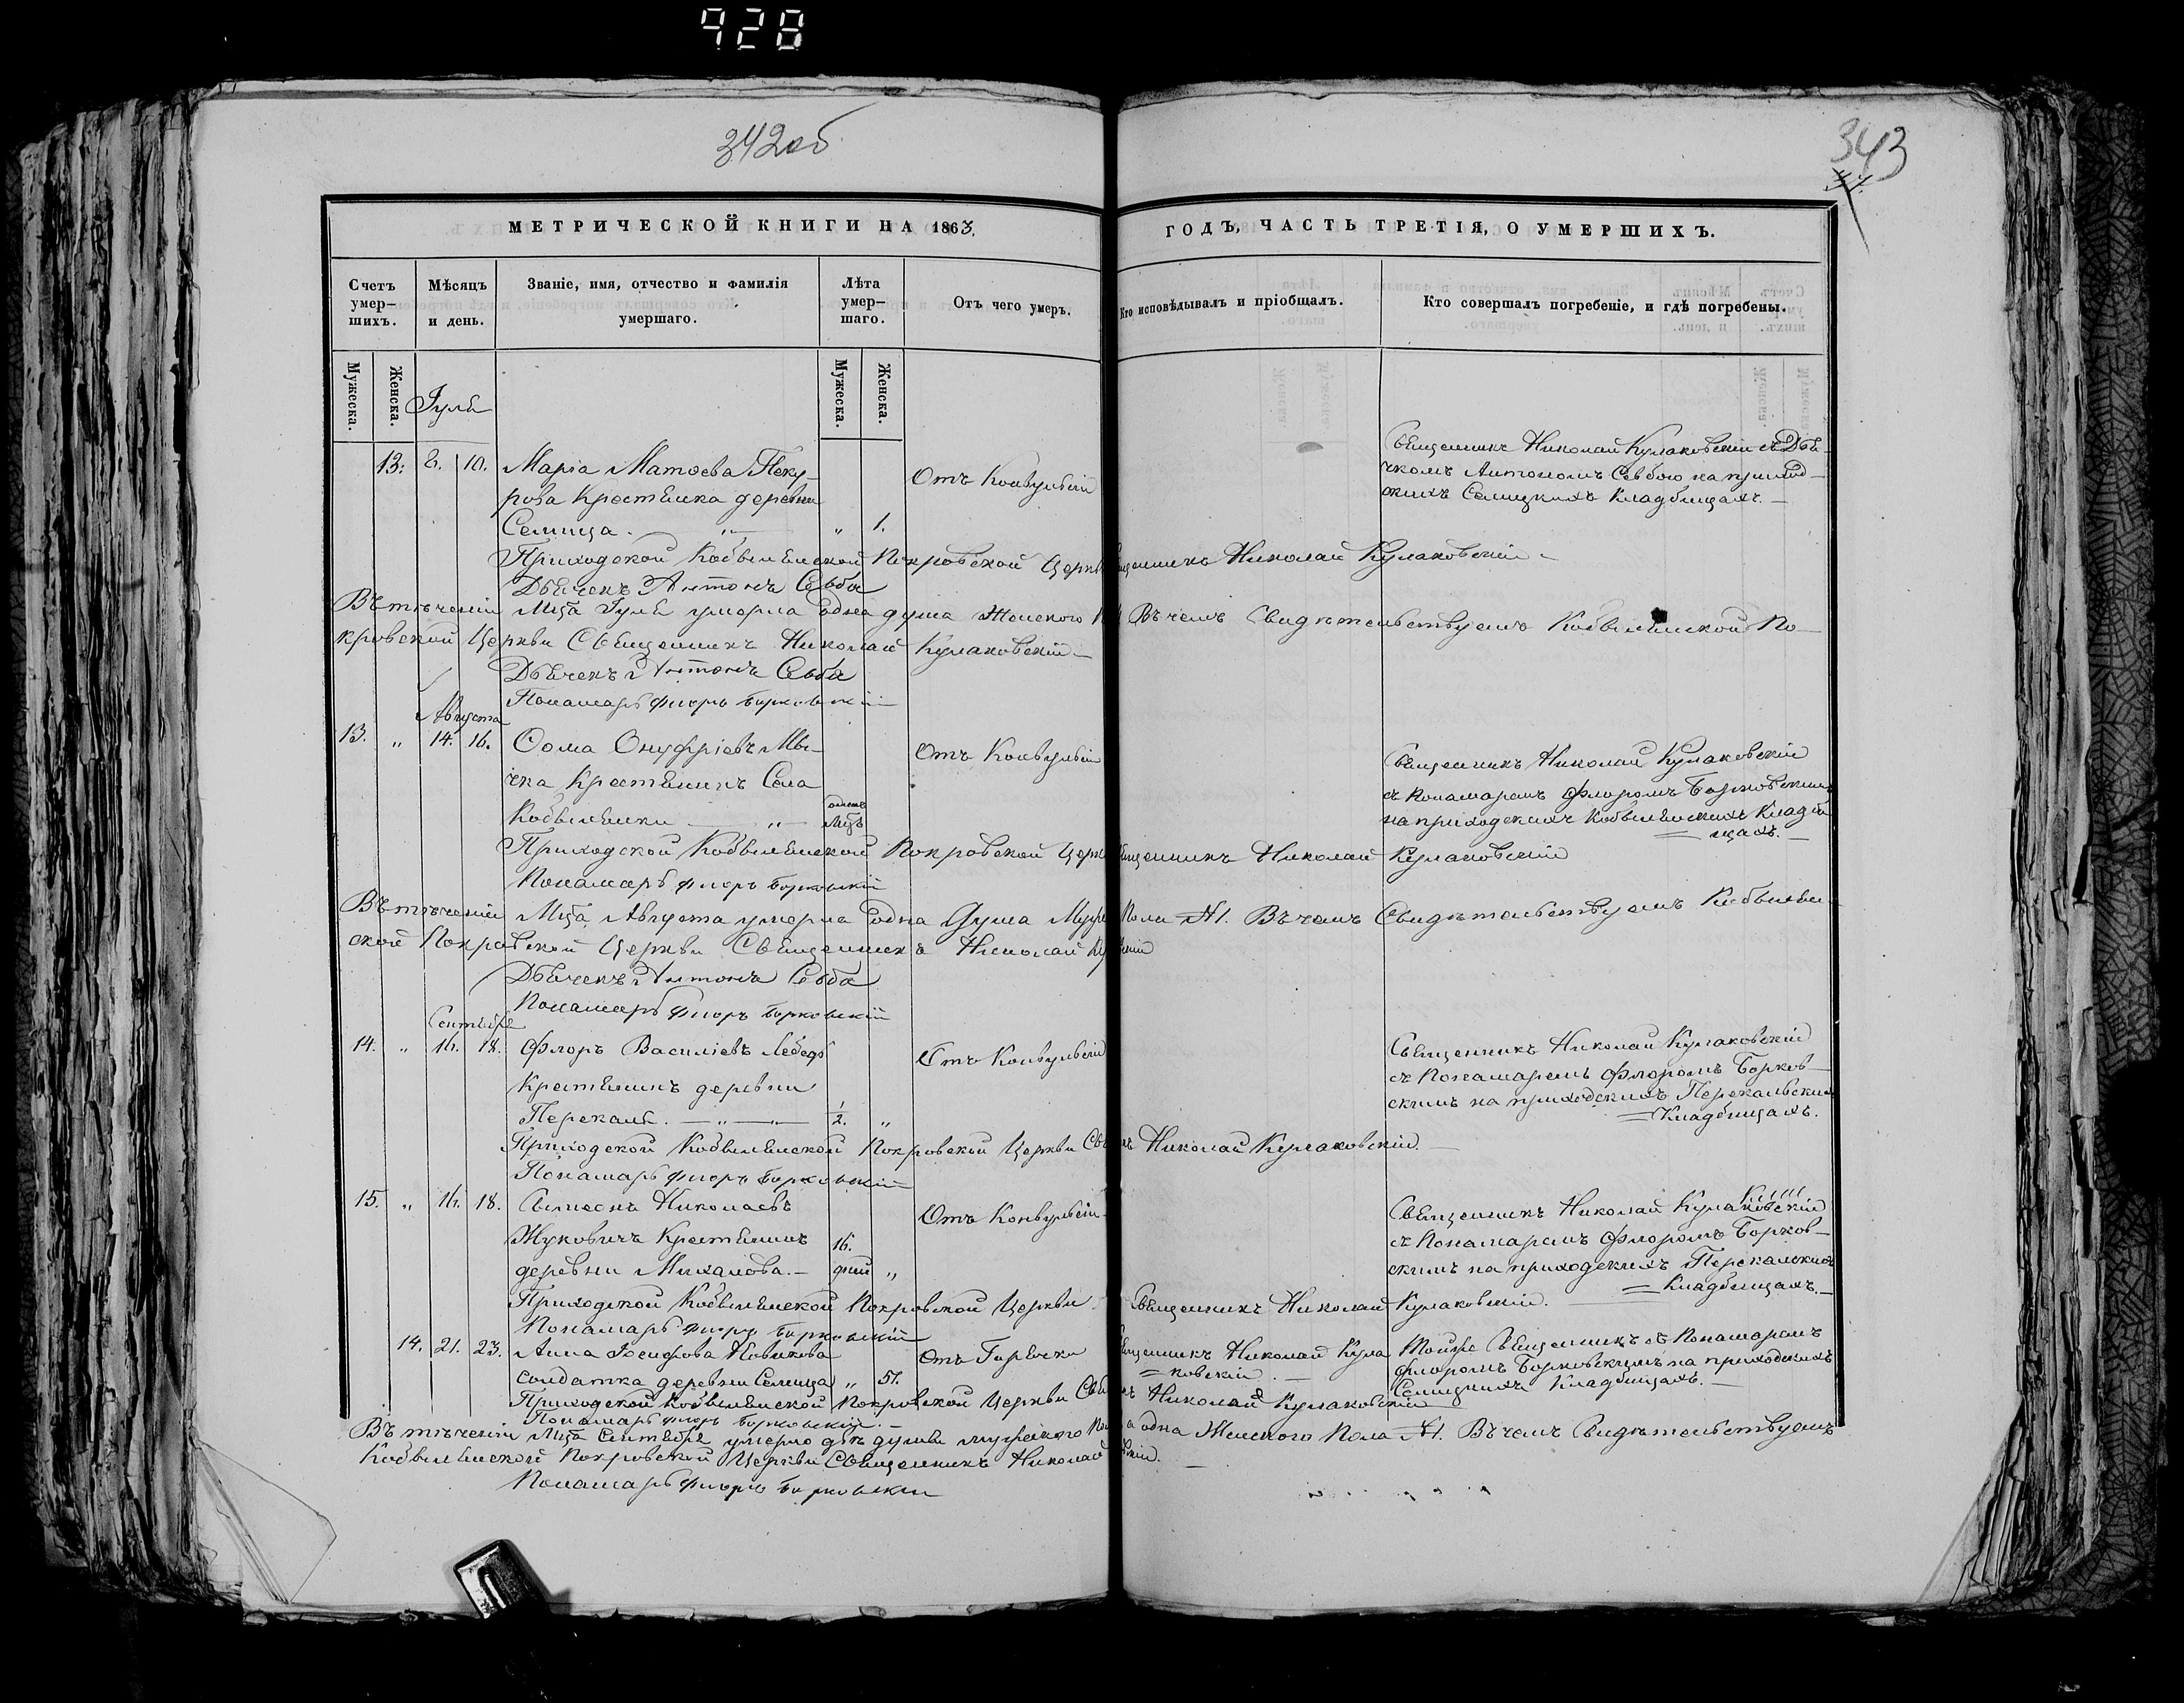 928
342об
343
МЕТРИЧЕСКОЙ КНИГИ НА 1863.
ГОДЪ, ЧАСТЬ ТРЕТІЯ, О УМЕРШИХЪ.
Счетъ умер-шихъ.
Мѣсяцъ и день.
Званіе, имя, отчество и фамилія умершаго.
Лѣта умер-шаго.
Отъ чего умеръ.
Кто исповѣдывалъ и пріобщалъ.
Кто совершалъ погребеніе, и гдѣ погребены.
Мужеска.
Женска.
Мужеска.
Женска.
Іуля
13. 8. 10. Марія Матоева Пеку-
рова Крестьянка деревни
Селища. " 1.
Отъ Конвульсій
Священникъ Николай Кулаковскій съ Дья-
чкомъ Антономъ Севбою на приход-
скихъ Селищкихъ Кладбищахъ.
Приходской Кобылянской Покровской Церкви Священникъ Николай Кулаковскій
Дьячекъ Антонъ Севба
Въ теченіи Мца Іуля умерла одна душа Женского Въ чемъ Свидѣтельствуемъ Кобылянской По-
кровской Церкви Священникъ Николай Кулаковскій
Дьячекъ Антонъ Севба
Понамарь Флоръ Борковскій
Августа
13. " 14. 16. Ѳома Онуфріевъ Мы-
чка Крестьянинъ Села
Кобылянки " одинъ мцъ
Отъ Конвульсій
Священникъ Николай Кулаковскій
съ Понамаремъ Флоромъ Борковскимъ
на приходскихъ Кобылянскихъ Кладби
щахъ.
Приходской Кобылянской Покровской Церкви Священникъ Николай Кулаковскій
Понамарь Флоръ Борковскій
Въ теченіи Мца Августа умерла одна Душа Мужес Пола №1. Въ чемъ Свидѣтельствуемъ Кобылян-
ской Покровской Церкви Священникъ Николай
Дьячекъ Антонъ Севба
Понамарь Флоръ Борковскій
Сентября
14. " 16. 18. Флоръ Василіевъ Лебедь
Крестьянинъ деревни
Перекаль. 1/2. "
Отъ Конвульсій
Священникъ Николай Кулаковскій
съ Понамаремъ Флоромъ Борков-
скимъ на приходскихъ Перекальскихъ
Кладбищахъ.
Приходской Кобылянской Покровской Церкви Николай Кулаковскій.
Понамарь Флоръ Борковскій
15. " 16. 18. Сымеонъ Николаевъ
Жуковичъ Крестьянинъ
деревни Миханова. 16. дній "
Отъ Конвульсій
Священникъ Николай Кулаковскій
съ Понамаремъ Флоромъ Борков-
скимъ на приходскихъ Перекальскихъ
Кладбищахъ.
Приходской Кобылянской Покровской Церкви Священникъ Николай Кулаковскій.
Понамарь Флоръ Борковскій
14. 21. 23. Анна Іосифова Новикова
солдатка деревни Селища " 51.
Отъ Горячки
Священникъ Николай Кула
ковскій.
Тойже Священникъ съ Понамаремъ
Флоромъ Борковскимъ на приходскихъ
Селищкихъ Кладбищахъ.
Приходской Кобылянской Покровской Церкви Николай Кулаковскій
Понамарь Флоръ Борковскій.
Въ теченіи Мца Сентября умерло двѣ души мужского а одна Женского Пола №1. Въ чемъ Свидѣтельствуемъ
Кобылянской Покровской Церкви Священникъ Николай
Понамарь Флоръ Борковскій